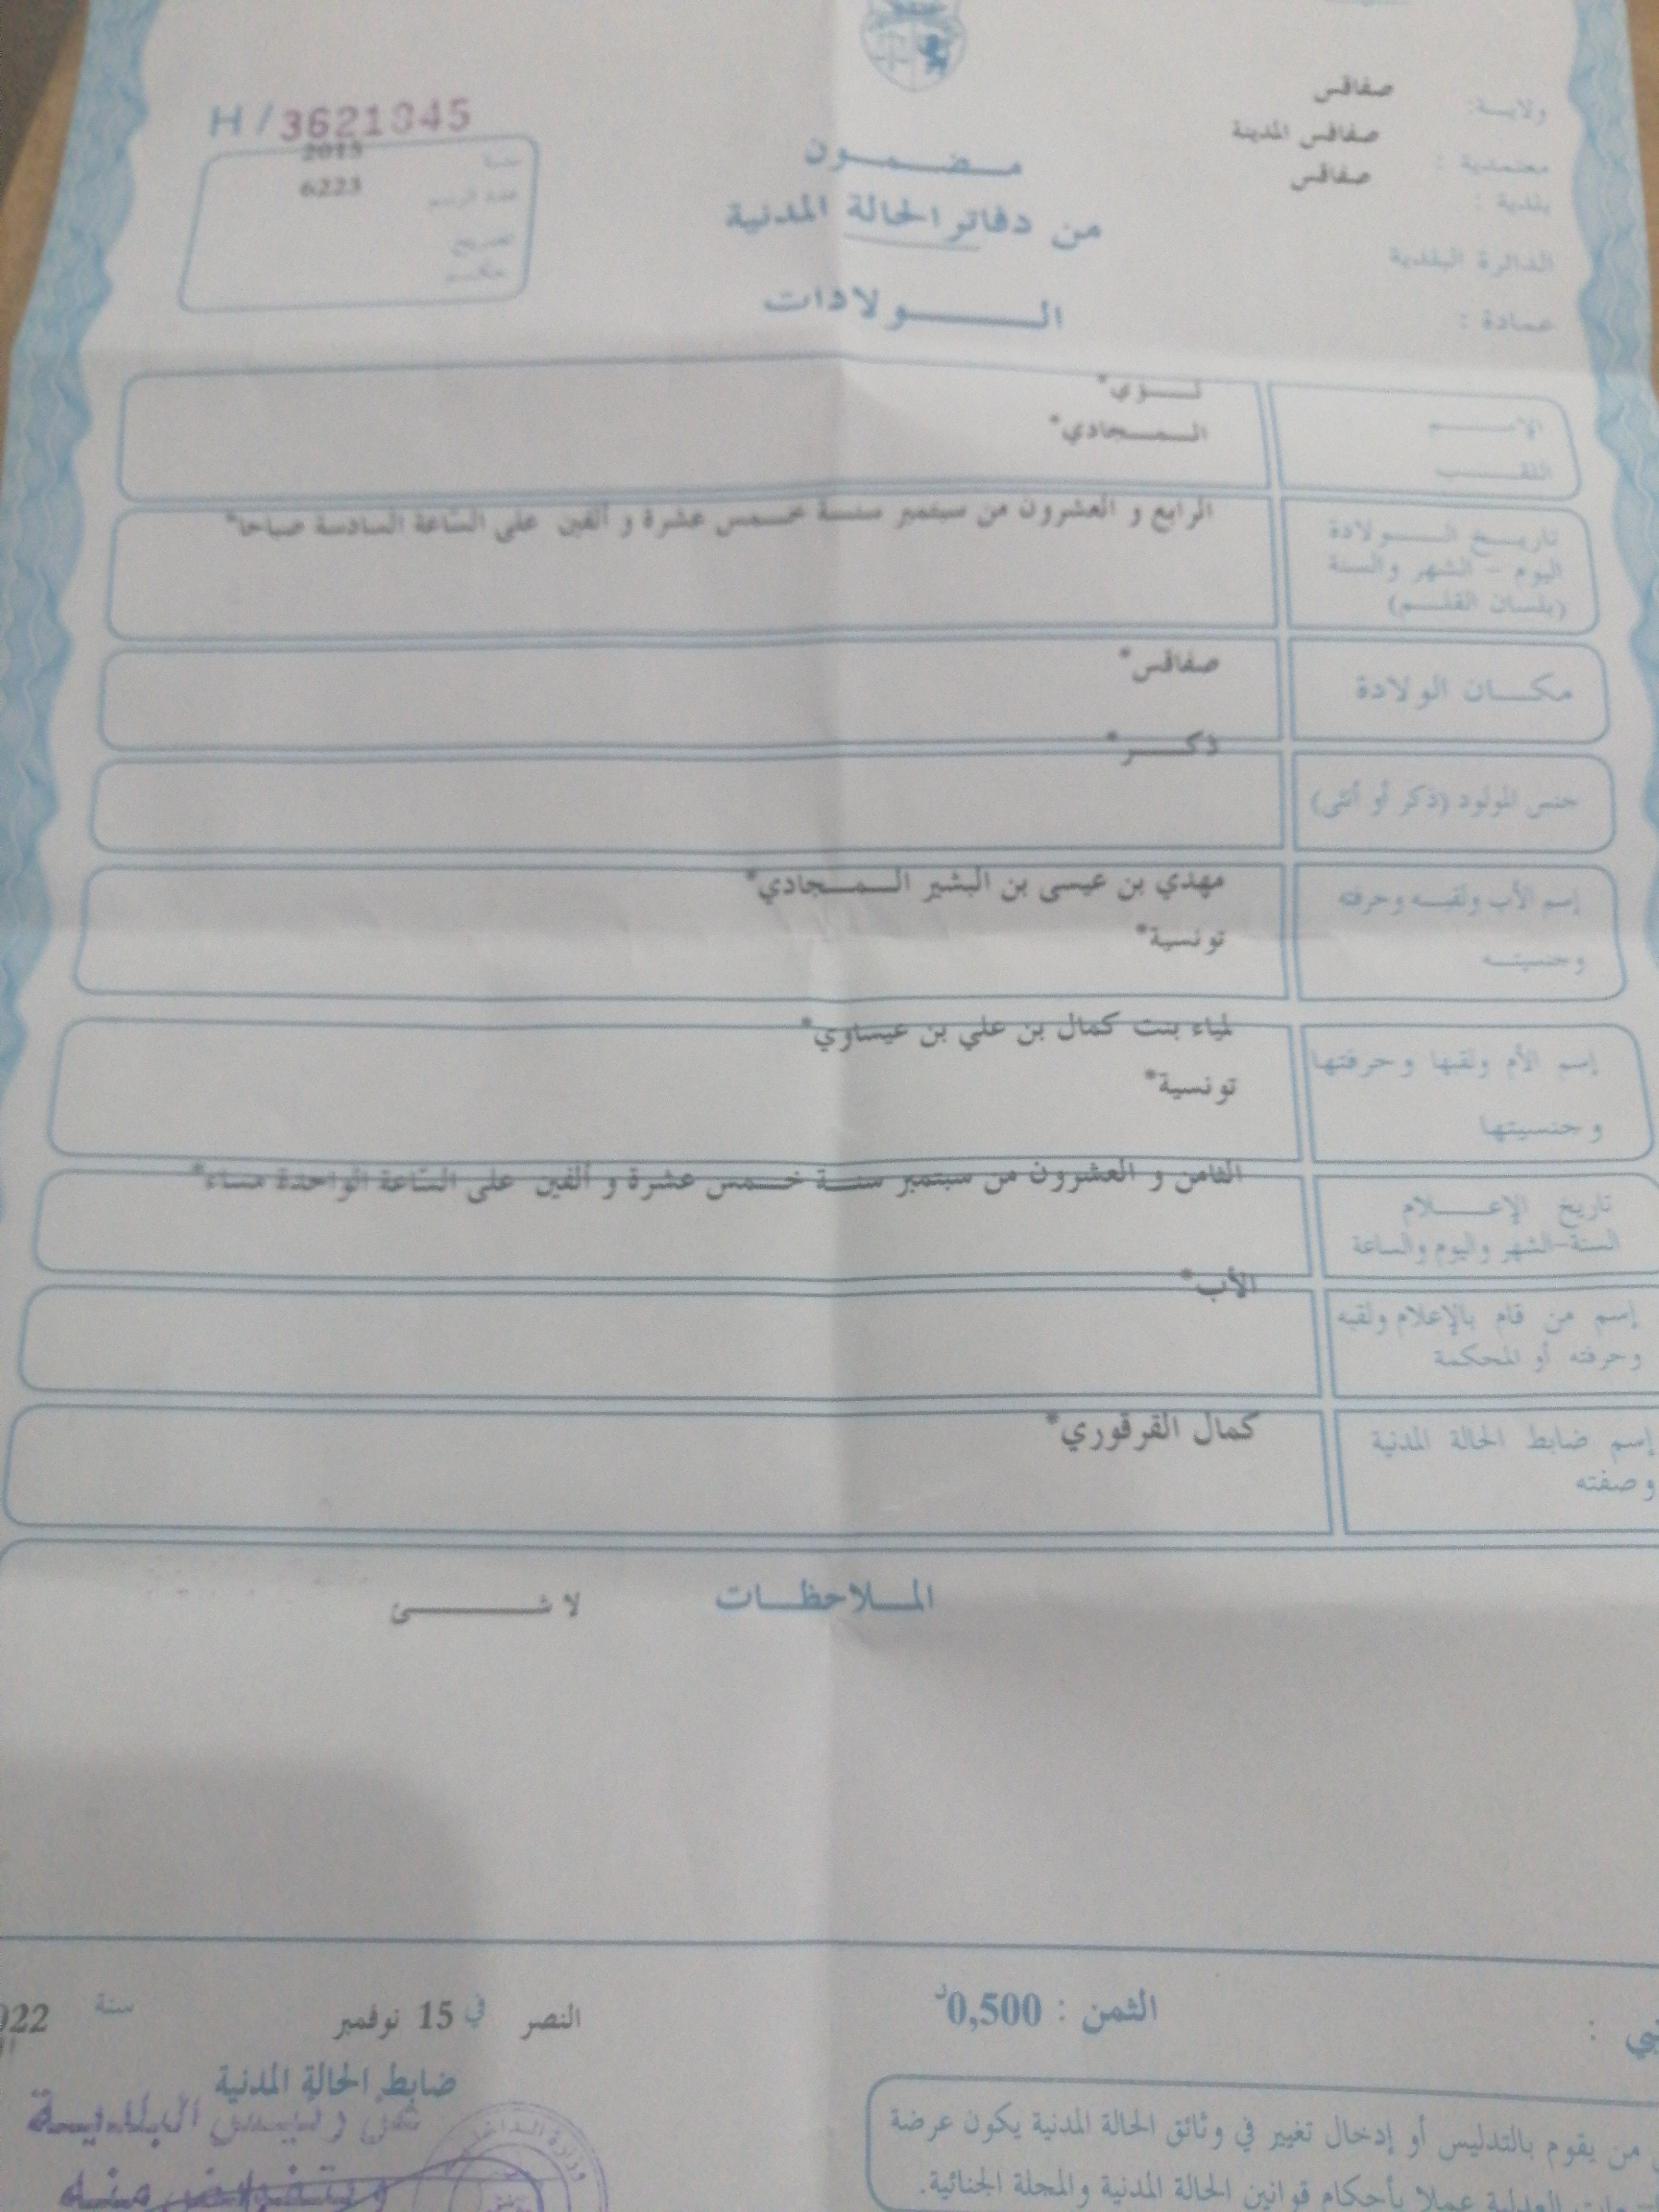 ولاية: صفاقس
معتمدية : صفاقس المدينة
بلدية : صفاقس
الدائرة البلدية
عمادة :
مضمون
من دفاتر الحالة المدنية
الولادات
H / 3621045
سنة 2015
عدد الرسم 6223
الإسم
اللقب المجادي*
تاريخ الولادة
اليوم - الشهر والسنة
(بلسان القلم)
الرابع و العشرون من سبتمبر سنة خمس عشرة و ألفين على السّاعة السادسة صباحا*
مكان الولادة صفاقس*
جنس المولود (ذكر أو أنثى) ذكر*
إسم الأب ولقبه وحرفته مهدي بن عيسى بن البشير المجادي*
وجنسيته تونسية*
إسم الأم ولقبها وحرفتها لمياء بنت كمال بن علي بن عيساوي*
وجنسيتها تونسية*
تاريخ الإعلام
السنة-الشهر واليوم والساعة
الثامن و العشرون من سبتمبر سنة خمس عشرة و ألفين على السّاعة الواحدة مساء*
إسم من قام بالإعلام ولقبه
وحرفته أو المحكمة
الأب*
إسم ضابط الحالة المدنية
وصفته
كمال القرقوري*
الملاحظات لا شئ
الثمن : 0,500د
النصر في 15 نوفمبر سنة
ضابط الحالة المدنية
عن رئيس البلدية
وبتفويض منه
من يقوم بالتدليس أو إدخال تغيير في وثائق الحالة المدنية يكون عرضة
العدلية عملا بأحكام قوانين الحالة المدنية والمجلة الجنائية.